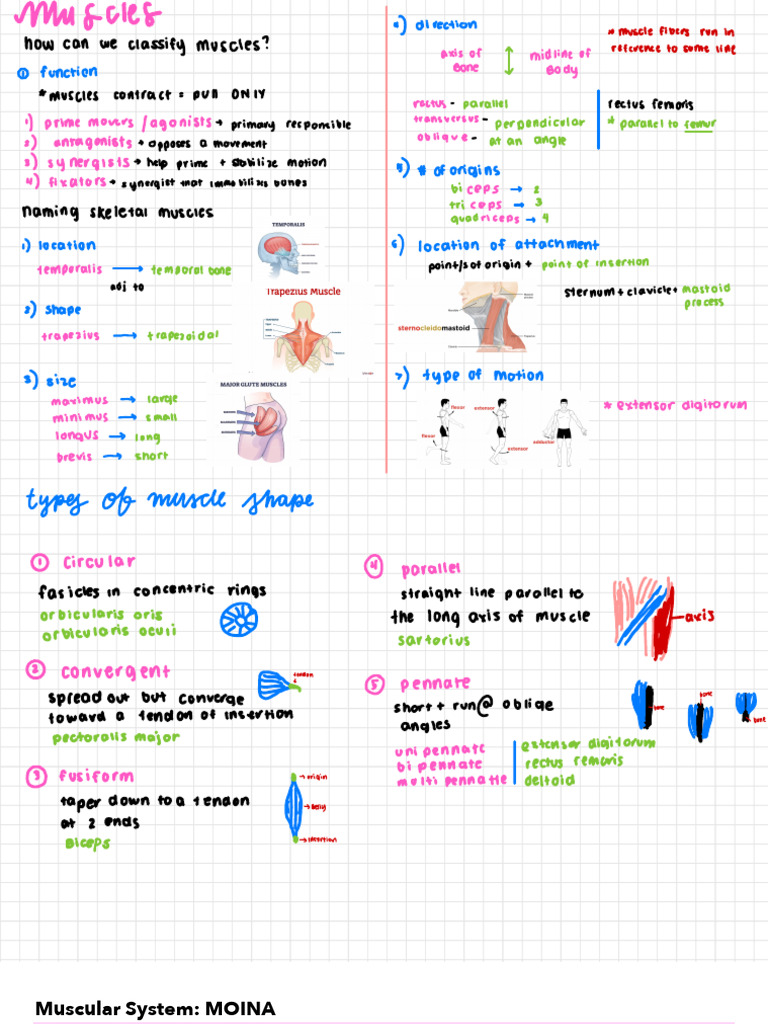 Muscles
how can we classify muscles?
① function
*muscles contract = pull ONLY
1) prime movers/agonists → primary responsible
2) antagonists → opposes a movement
3) synergists → help prime + stabilize motion
4) fixators → synergist that immobilizes bones
naming skeletal muscles
1) location
temporalis → temporal bone
adj to
TEMPORALIS
2) shape
trapezius → trapezoidal
Trapezius Muscle
3) size
maximus → large
minimus → small
longus → long
brevis → short
MAJOR GLUTE MUSCLES
4) direction
* muscle fibers run in
reference to some line
axis of
Bone
midline of
Body
rectus - parallel
transversus - perpendicular
oblique - at an angle
rectus femoris
* parallel to femur
5) # of origins
biceps → 2
triceps → 3
quadriceps → 4
6) location of attachment
point/s of origin + point of insertion
sternocleidomastoid
sternum + clavicle + mastoid
process
7) type of motion
flexor
flexor
extensor
extensor
adductor
* extensor digitorum
types of muscle shape
① circular
fasicles in concentric rings
orbicularis oris
orbicularis oculi
② convergent
spread out but converge
toward a tendon of insertion
pectoralis major
tendon
③ fusiform
taper down to a tendon
at 2 ends
Biceps
origin
belly
insertion
④ parallel
straight line parallel to
the long axis of muscle
sartorius
axis
⑤ pennate
short + run @ obliqe
angles
uni pennate
bi pennate
multi pennatte
extensor digitorum
rectus femoris
deltoid
bone
bone
bone
Muscular System: MOINA